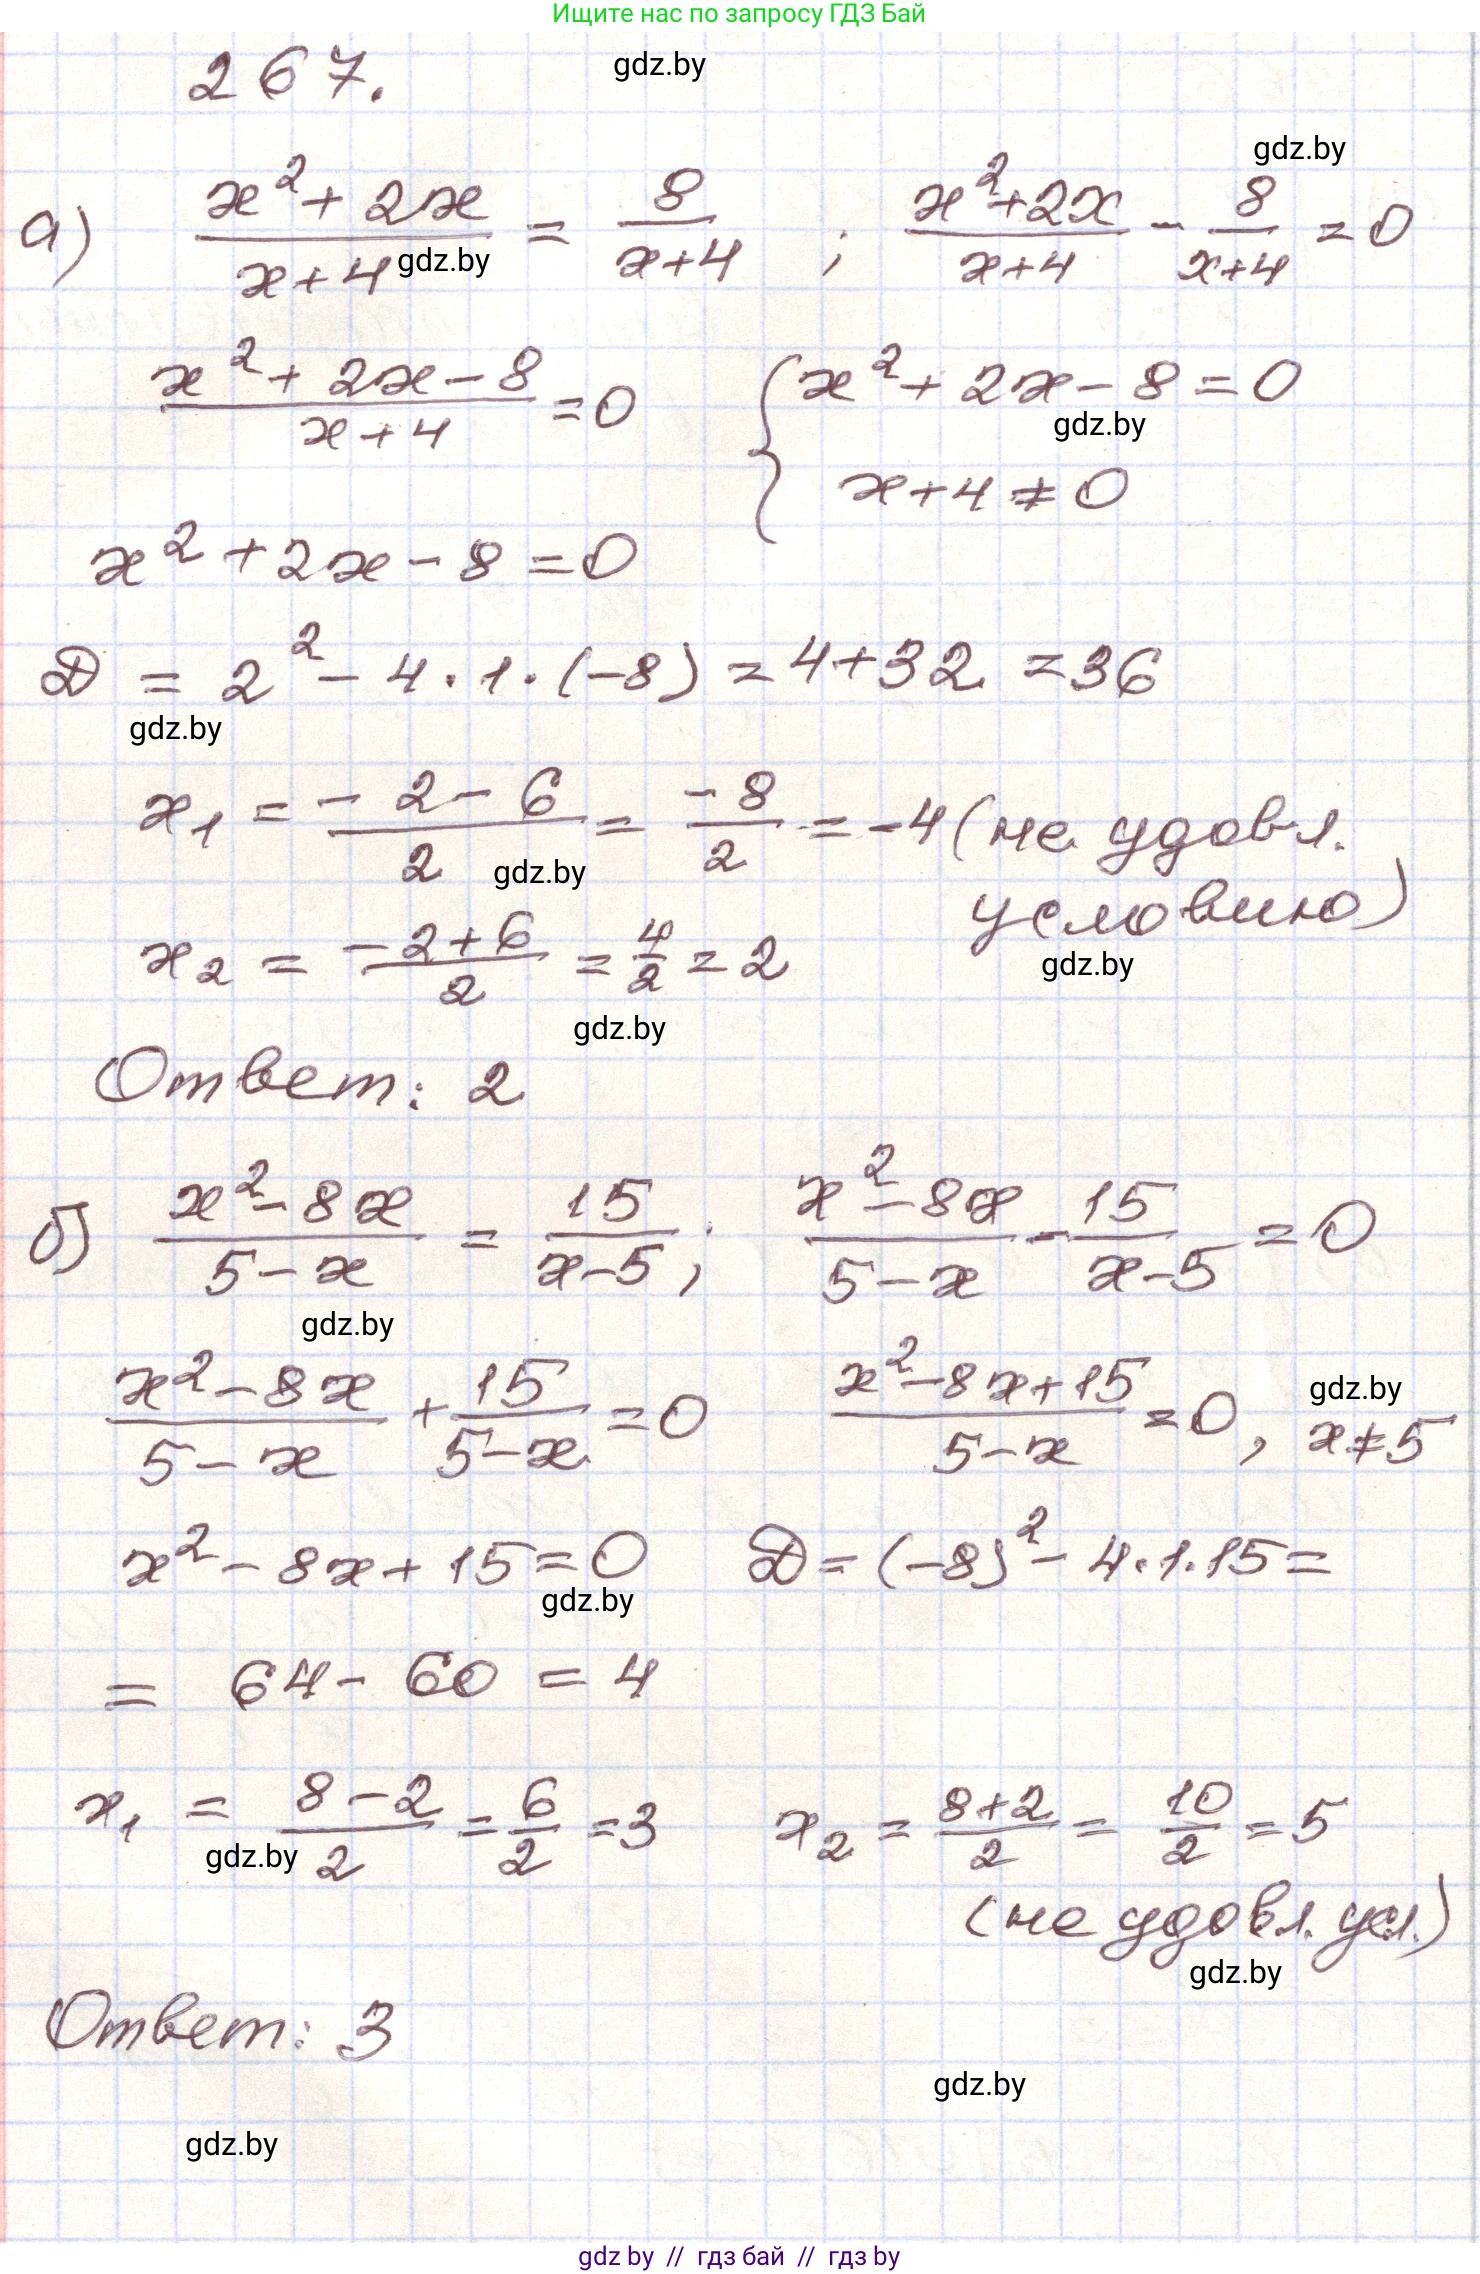 Ищите нас по запросу ГДЗ Бай
267.
gdz.by
gdz.by
а) (x² + 2x)/(x+4) = 8/(x+4) ; (x²+2x)/(x+4) - 8/(x+4) = 0
gdz.by
(x² + 2x - 8)/(x+4) = 0 { x² + 2x - 8 = 0
gdz.by
x+4 ≠ 0
x² + 2x - 8 = 0
D = 2² - 4 · 1 · (-8) = 4+32 = 36
gdz.by
x₁ = (-2-6)/2 = -8/2 = -4 (не удовл.
gdz.by
условию)
x₂ = (-2+6)/2 = 4/2 = 2
gdz.by
gdz.by
Ответ: 2
б) (x²-8x)/(5-x) = 15/(x-5) ; (x²-8x)/(5-x) - 15/(x-5) = 0
gdz.by
(x²-8x)/(5-x) + 15/(5-x) = 0 (x²-8x+15)/(5-x) = 0, x≠5
gdz.by
x² - 8x + 15 = 0 D = (-8)² - 4·1·15 =
gdz.by
= 64 - 60 = 4
x₁ = (8-2)/2 = 6/2 = 3 x₂ = (8+2)/2 = 10/2 = 5
gdz.by
(не удовл. усл.)
gdz.by
Ответ: 3
gdz.by
gdz.by
gdz by // гдз бай // гдз by